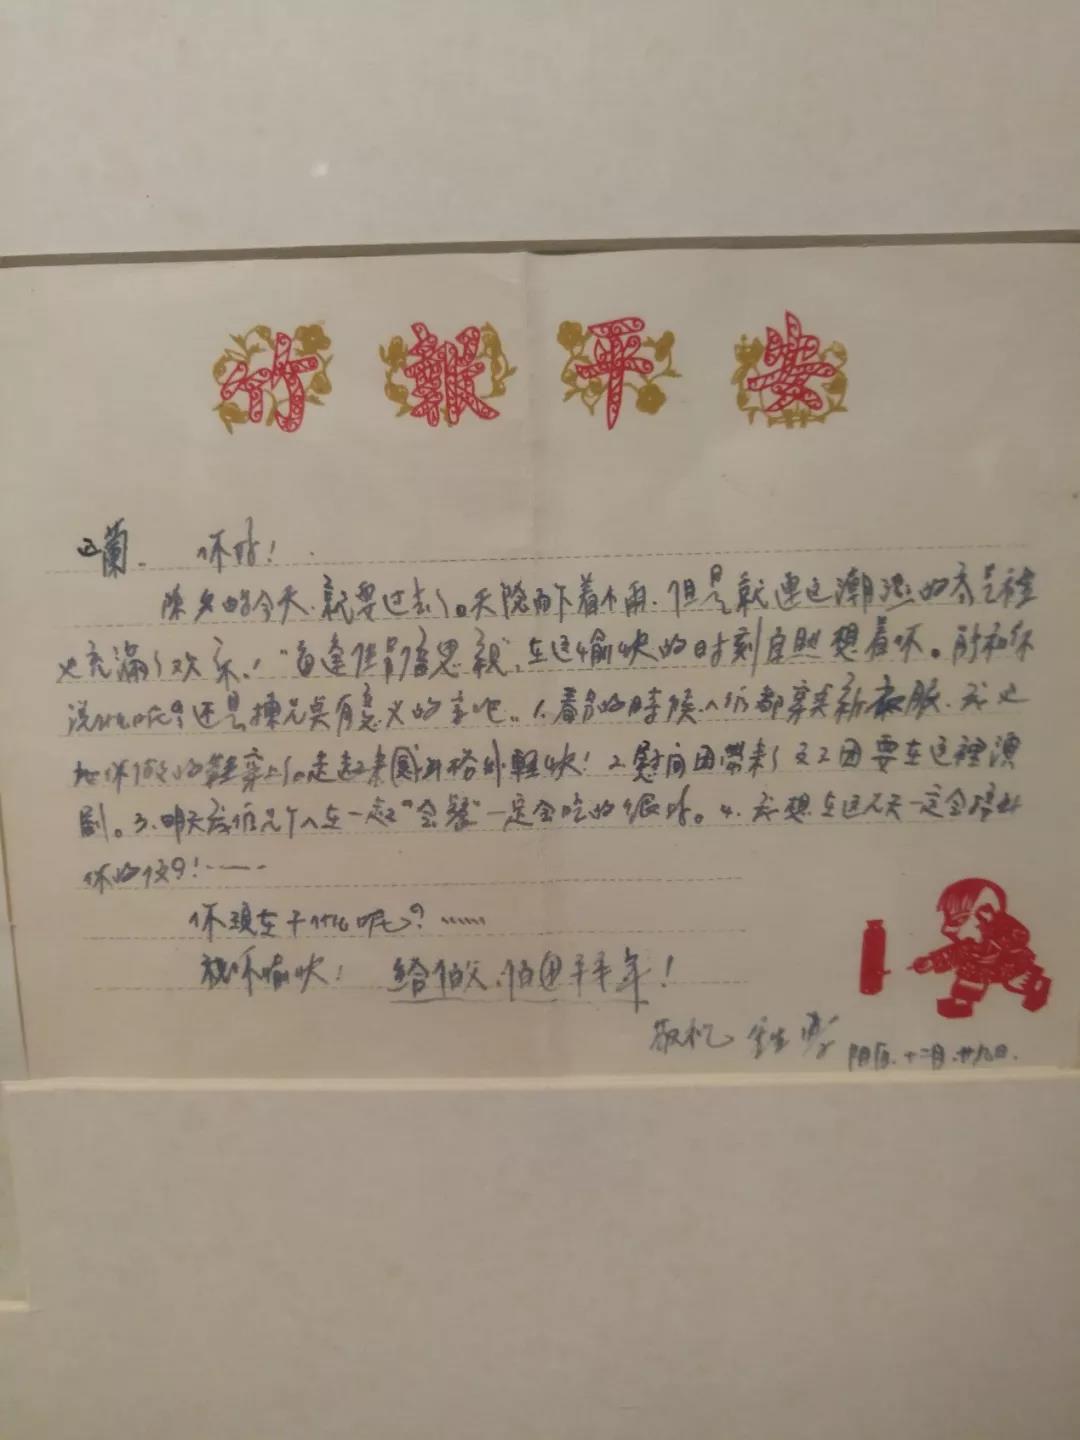 竹報平安
正蘭. 你好!
除夕的今天、就要过去了。天隂而下着小雨、但是就連这潮湿的空气裡
也充滿了欢乐!"每逢佳节倍思親",在这愉快的时刻自然想着你。所和你
说什么呢?还是揀几莫有意义的事吧。1.春节的時候人们都穿着新衣服、我也
把你做的鞋穿上了。走起来感到格外輕快!2.慰问团帶来了文工团要在这裡演
剧。3.明天我们几个人在一起"会餐"一定会吃的很好。4.我想在这几天一定会
你的仪!……
你現在干什么呢?……
祝你愉快! 給伯父、伯母拜年!
敬礼
阴历.十二月.廿九日.